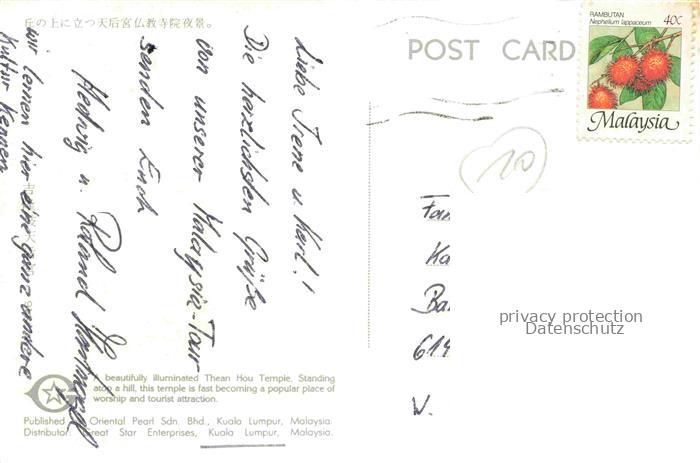 丘の上に立つ天后宮仏教寺院夜景。
POST CARD
RAMBUTAN
Nephelium lappaceum
40¢
Malaysia
Liebe Irene u. Karl!
Die herzlichsten Grüße
von unserer Malaysia-Tour
senden Euch
Hedwig u. Roland
wir lernen hier eine ganz andere
Kultur kennen
10
Fam
Ka
Ba
619
W.
privacy protection
Datenschutz
A beautifully illuminated Thean Hou Temple. Standing
atop a hill, this temple is fast becoming a popular place of
worship and tourist attraction.
Published Oriental Pearl Sdn. Bhd., Kuala Lumpur, Malaysia.
Distributor: Great Star Enterprises, Kuala Lumpur, Malaysia.